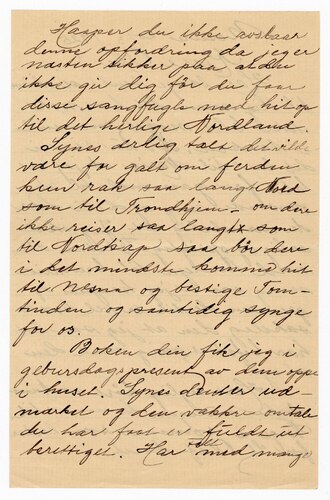 Haaper du ikke avslaar
denne opfordring da jeg er
næsten sikker paa at du
ikke gir dig før du faar
disse sangfugle med hit op
til det herlige Nordland.
Synes ærlig talt det vilde
være for galt om ferden
kun rak saa langt Nord
som til Trondhjem – om dere
ikke reiser saa langt som
til Nordkap saa bør dere
i det mindste komme hit
til Nesna og bestige Tom-
tinden og samtidig synge
for os.
Boken din fik jeg i
geburdsdagspresent av dem oppe
i huset. Synes den er ud-
mærket og den vakkre omtale
du har faat er fuldt ut
berettiget. Har med mange